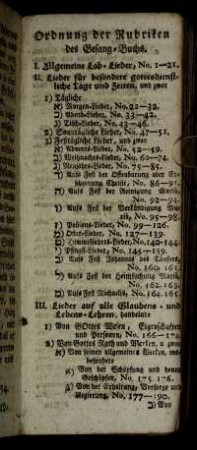 Ordnung der Rubriken
des Gesang-Buchs.
I. Allgemeine Lob-Lieder, No. 1-21.
II. Lieder für besondere gottesdienst-
liche Tage und Zeiten, und zwar
1) Tägliche
א) Morgen-Lieder, No. 22-32.
ב) Abend-Lieder, No. 33-42.
ג) Tisch-Lieder, No. 43-46.
2) Sonntägliche Lieder, No. 47-51.
3) Festtägliche Lieder, und zwar
א) Advents-Lieder, No. 52-59.
ב) Weihnachts-Lieder, No. 60-74.
ג) Neujahrs-Lieder, No. 75-85.
Aufs Fest der Offenbarung oder Er-
scheinung Christi, No. 86-91.
Aufs Fest der Reinigung Mariä,
No. 92-94.
Aufs Fest der Verkündigung Ma-
riä, No. 95-98.
Passions-Lieder, No. 99-126.
Oster-Lieder, No. 127-139.
Himmelfahrts-Lieder, No. 140-144.
Pfingst-Lieder, No. 145-159.
Aufs Fest Johannis des Täufers,
No. 160. 161.
Aufs Fest der Heimsuchung Mariä,
No. 162. 163.
Aufs Fest Michaelis, No. 164. 165.
III. Lieder auf alle Glaubens- und
Lebens-Lehren, handelnde
1) Von GOttes Wesen, Eigenschaften
und Personen, No. 166-174.
2) Von GOttes Rath und Werken, u. zwar
א) Von seinen allgemeinen Werken, ins-
besondere
א) Von der Schöpfung und denen
Geschöpfen, No. 175. 176.
ב) Von der Erhaltung, Vorsorge und
Regierung, No. 177-190.
ב) Von